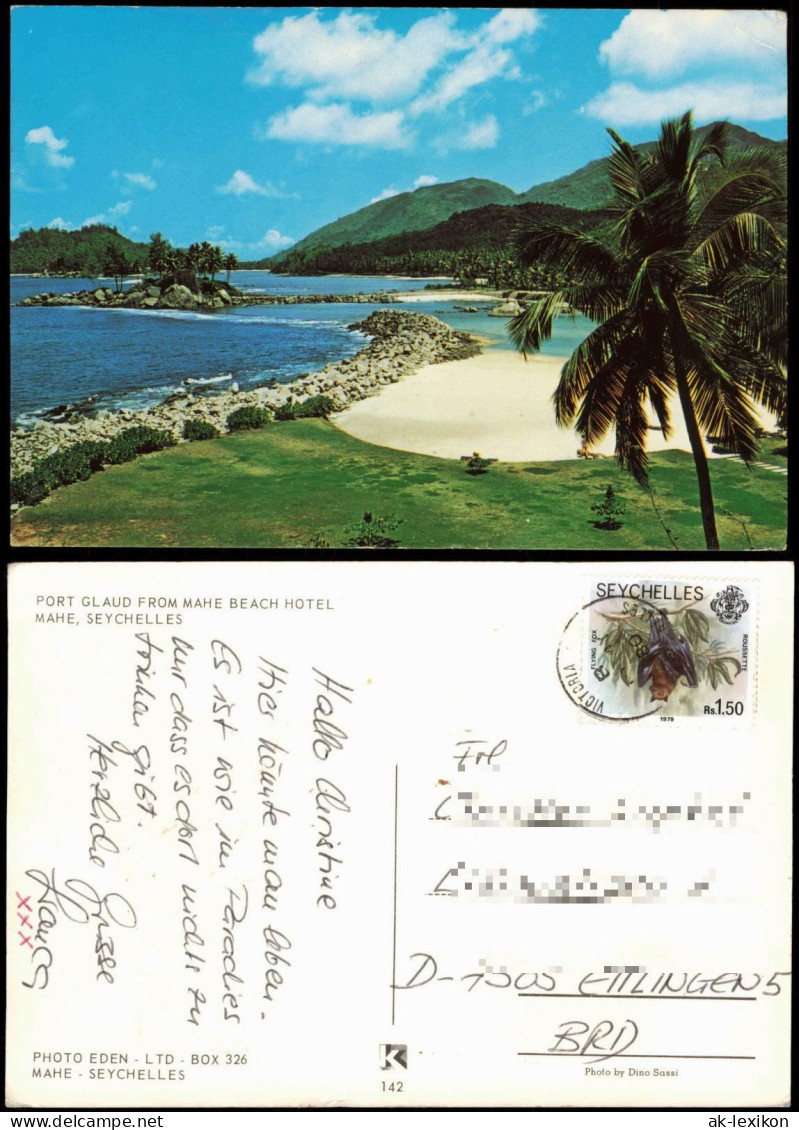 PORT GLAUD FROM MAHE BEACH HOTEL
MAHE, SEYCHELLES
Hallo Christine
Hier könnte man leben.
Es ist wie im Paradies
Nur dass es dort nichts zu
trinken gibt.
Herzliche Grüsse
xxx
PHOTO EDEN - LTD - BOX 326
MAHE - SEYCHELLES
K
142
SEYCHELLES
FLYING FOX
ROUSSETTE
Rs.1.50
1979
VICTORIA
Frl
ETTLINGEN 5
BRD
Photo by Dino Sassi
www.delcampe.net
ak-lexikon